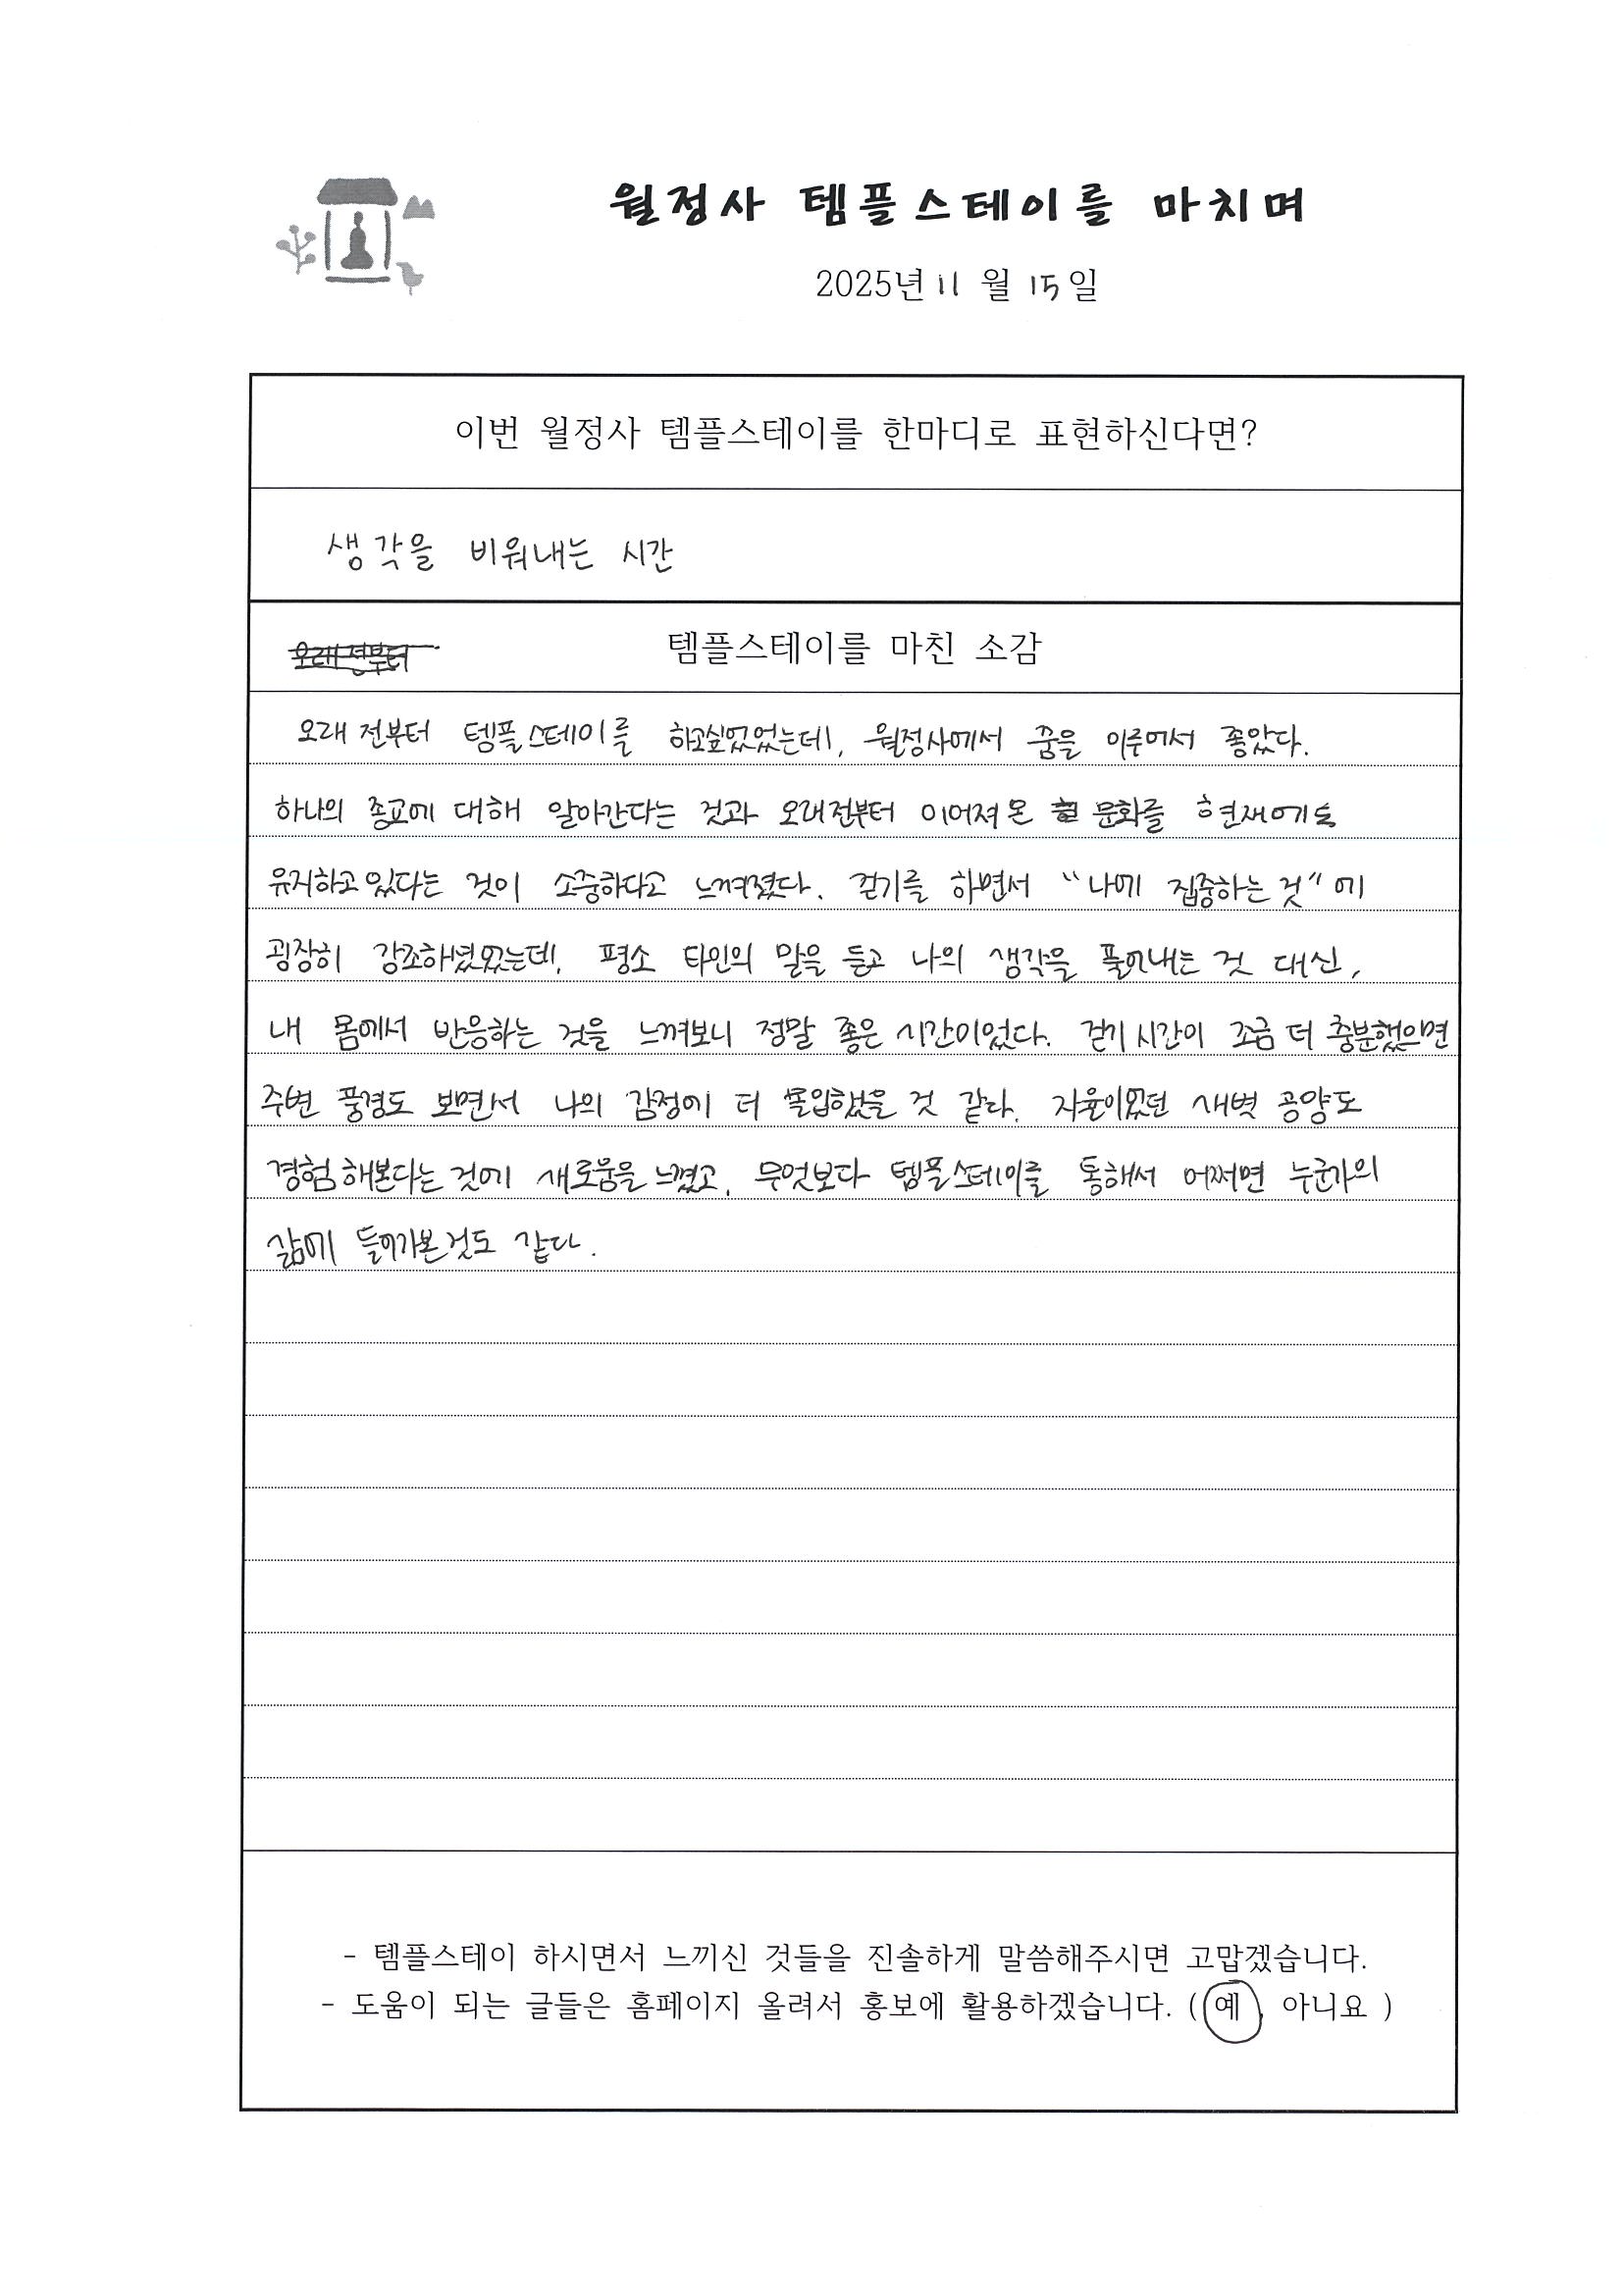 월정사 템플스테이를 마치며
2025년 11월 15일
이번 월정사 템플스테이를 한마디로 표현하신다면?
생각을 비워내는 시간
오래전부터
템플스테이를 마친 소감
오래 전부터 템플스테이를 하고싶었었는데, 월정사에서 꿈을 이루어서 좋았다.
하나의 종교에 대해 알아간다는 것과 오래전부터 이어져 온 문화를 현재에도
유지하고 있다는 것이 소중하다고 느껴졌다. 걷기를 하면서 "나에 집중하는 것"에
굉장히 강조하셨었는데, 평소 타인의 말을 듣고 나의 생각을 풀어내는 것 대신,
내 몸에서 반응하는 것을 느껴보니 정말 좋은 시간이었다. 걷기 시간이 조금 더 충분했으면
주변 풍경도 보면서 나의 감정에 더 몰입했을 것 같다. 자율이었던 새벽 공양도
경험해본다는 것에 새로움을 느꼈고, 무엇보다 템플스테이를 통해서 어쩌면 누군가의
삶에 들어가본것도 같다.
- 템플스테이 하시면서 느끼신 것들을 진솔하게 말씀해주시면 고맙겠습니다.
- 도움이 되는 글들은 홈페이지 올려서 홍보에 활용하겠습니다. ( 예, 아니요 )